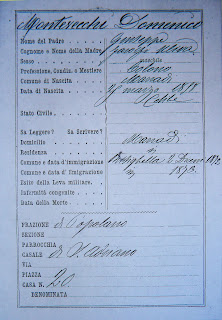 Montevecchi Domenico
Nome del Padre Giuseppe
Cognome e Nome della Madre
Sesso maschile
Professione, Condiz. e Mestiere Colono
Comune di Nascita Marradi
Data di Nascita marzo
Celibe
Stato Civile
Sa Leggere? Sa Scrivere?
Domicilio Marradi
Residenza
Comune e data d'immigrazione
Comune e data d'Emigrazione
Esito della Leva militare.
Infermità congenite
Data della Morte
FRAZIONE di Popolano
SEZIONE
PARROCCHIA
CASALE di S. Adriano
VIA
PIAZZA
CASA N. 20
DENOMINATA